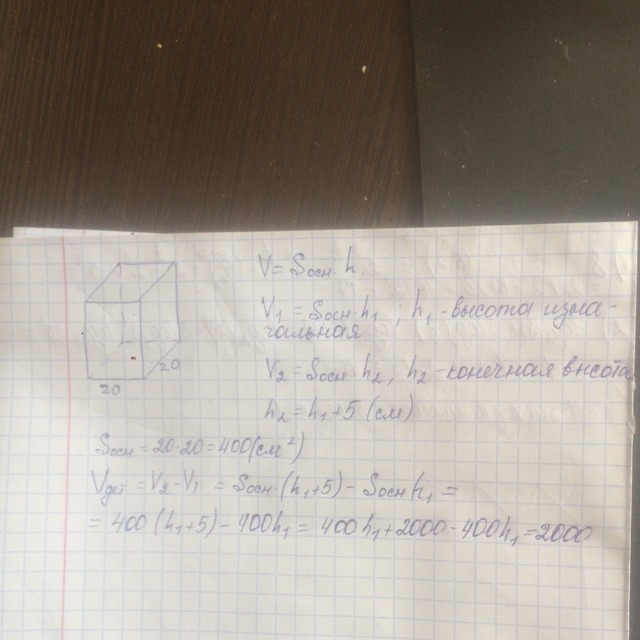 V = Sосн · h
V₁ = Sосн · h₁ ; h₁ - высота изна-
чальная
V₂ = Sосн · h₂ ; h₂ - конечная высота
h₂ = h₁ + 5 (см)
20
20
Sосн = 20 · 20 = 400 (см²)
Vдет = V₂ - V₁ = Sосн · (h₁ + 5) - Sосн h₁ =
= 400 (h₁ + 5) - 400h₁ = 400h₁ + 2000 - 400h₁ = 2000